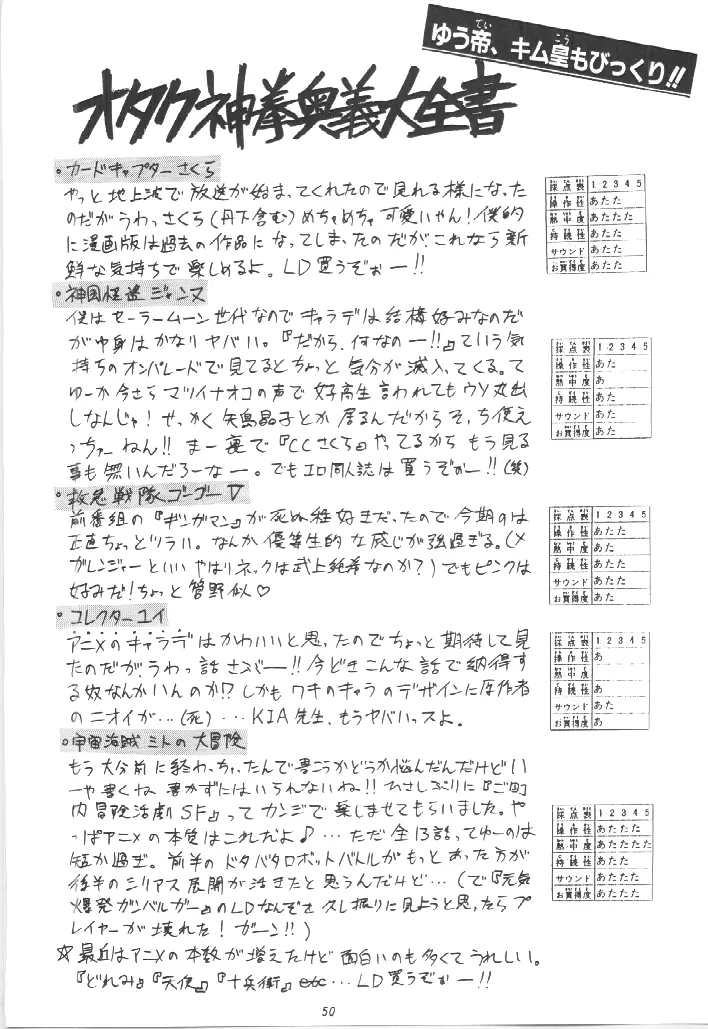 ゆう帝、キム皇もびっくり!!
オタク神拳奥義大全書
・カードキャプターさくら
やっと地上波で放送が始まってくれたので見れる様になった
のだがうわっさくら(丹下含む)めちゃめちゃ可愛いやん!僕的
に漫画版は過去の作品になってしまったのだが、これなら新
鮮な気持ちで楽しめるよ。LD買うぞぉー!!
採点表 1 2 3 4 5
操作性 あたた
熱中度 あたたた
持続性 あたた
サウンド あたた
お買得度 あたた
・神風怪盗ジャンヌ
僕はセーラームーン世代なのでキャラデは結構好みなのだ
が中身はかなりヤバい。『だから、何なのー!!』ていう気
持ちのオンパレードで見てるとちょっと気分が滅入ってくる。て
ゆーか今さらマツイナオコの声で好高生言われてもウソ丸出
しなんじゃ!せっかく矢島晶子とか居るんだからそっち使え
っちゅーねん!!まー裏で『CCさくら』やってるからもう見る
事も無いんだろーなー。でもエロ同人誌は買うぞぉー!!(笑)
採点表 1 2 3 4 5
操作性 あた
熱中度 あ
持続性 あた
サウンド あた
お買得度 あた
・救急戦隊ゴーゴーV
前番組の『ギンガマン』が死ぬ程好きだったので今期のは
正直ちょっとツラい。なんか優等生的な感じが強過ぎる。(メ
ガレンジャーといいやはりネックは武上純希なのか?)でもピンクは
好みだ!ちょっと菅野似♡
採点表 1 2 3 4 5
操作性 あたた
熱中度 あた
持続性 あたた
サウンド あた
お買得度 あた
・コレクターユイ
アニメのキャラデはかわいいと思ったのでちょっと期待して見
たのだが、うわっ話さぶー!!今どきこんな話で納得す
る奴なんかいんのか!?しかもワキのキャラのデザインに原作者
のニオイが…(死)…KIA先生、もうヤバいっスよ。
採点表 1 2 3 4 5
操作性 あ
熱中度
持続性 あ
サウンド あた
お買得度 あ
・宇宙海賊ミトの大冒険
もう大分前に終わっちゃったんで書こうかどうか悩んだんだけどい
ーや書くね 書かずにはいられないね!!ひさしぶりに『ご町
内冒険活劇SF』ってカンジで楽しませてもらいました。や
っぱアニメの本質はこれだよ♪…ただ全13話ってゆーのは
短か過ぎ。前半のドタバタロボットバトルがもっとあった方が
後半のシリアス展開が活きたと思うんだけど…(で『元気
爆発ガンバルガー』のLDなんぞを久し振りに見ようと思ったらプ
レイヤーが壊れた!ガーン!!)
採点表 1 2 3 4 5
操作性 あたたた
熱中度 あたたたた
持続性 あたた
サウンド あたた
お買得度 あたたた
☆最近はアニメの本数が増えたけど面白いのも多くてうれしい。
『どれみ』『天使』『十兵衛』etc…LD買うぞぉー!!
50